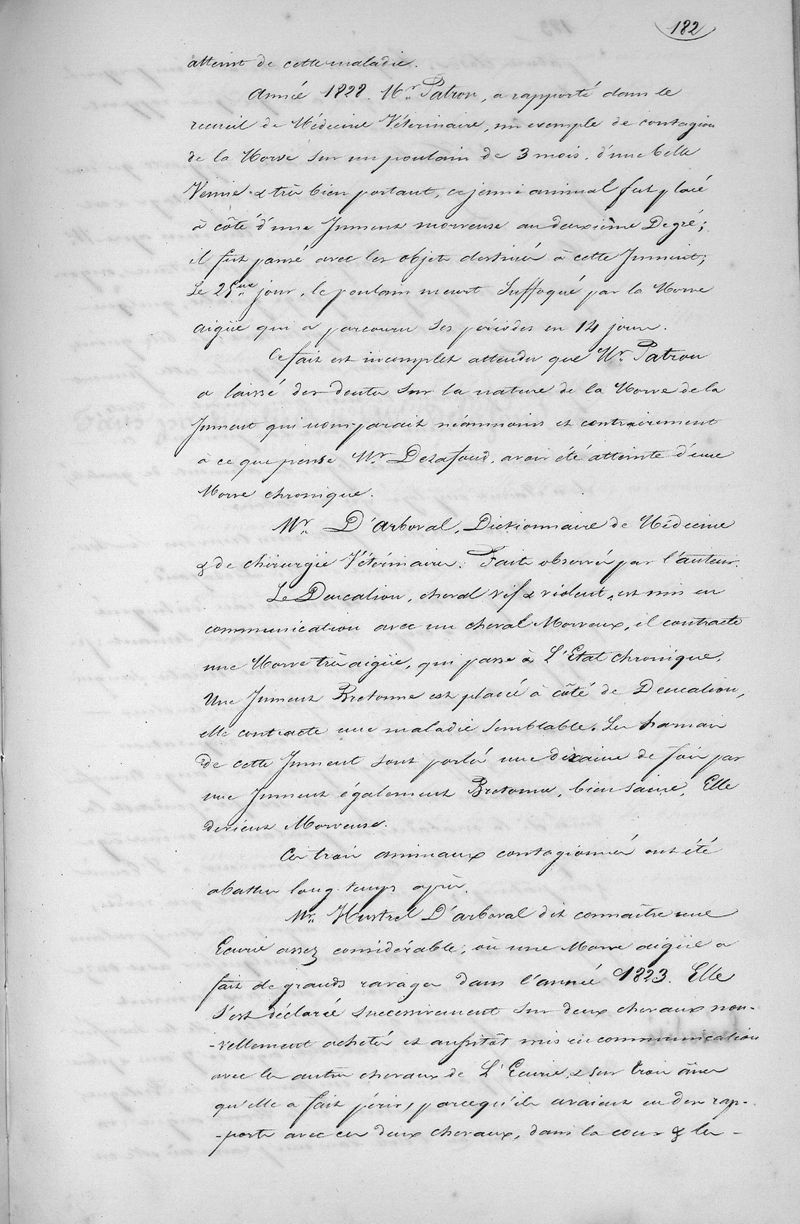 182
atteint de cette maladie.
Année 1828. Mr. Patron, a rapporté dans le
recueil de Médecine Vétérinaire, un exemple de contagion
de la Morve sur un poulain de 3 mois, d'une belle
Venue & très bien portant, ce jeune animal fut placé
à côté d'une Jument morveuse au deuxième Degré;
il fut pansé avec les objets destinés à cette Jument;
Le 25ème jour, le poulain meurt Suffoqué par la Morve
aigüe qui a parcouru ses périodes en 14 jours.
Ce fait est incomplet attendu que Mr. Patron
a laissé des doutes sur la nature de la Morve de la
Jument qui nous parait néanmoins et contrairement
à ce que pense Mr. Delafoud, avoir été atteinte d'une
Morve chronique.
Mr. D'Arboval, Dictionnaire de Médecine
& de chirurgie Vétérinaires. Faits observés par l'auteur.
Le Deucalion, cheval vif & violent, est mis en
communication avec un cheval Morveux, il contracte
une Morve très aigüe, qui passe à L'Etat chronique.
Une Jument Bretonne est placée à côté de Deucalion,
elle contracte une maladie semblable. Les harnais
de cette Jument sont portés une dixaine de fois par
une Jument également Bretonne, bien saine, Elle
devient Morveuse.
Ces trois animaux contagionnés ont été
abattus long-temps après.
Mr. Hurtrel D'arboval dit connaître une
Ecurie assez considérable, où une Morve aigüe a
fait de grands ravages dans l'année 1823. Elle
s'est déclarée successivement sur deux chevaux nou-
-vellement achetés et aussitôt mis en communication
avec les autres chevaux de L'Ecurie, & sur trois ânes
qu'elle a fait périr, parcequ'ils avaient eu des rap-
-ports avec ces deux chevaux, dans la cour & les -